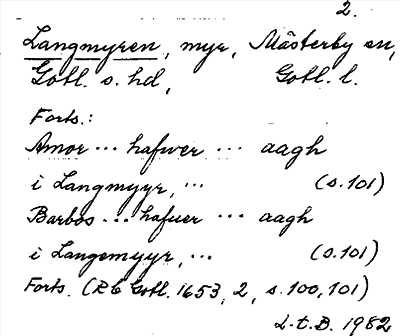 2.
Langmyren, myr, Mästerby sn,
Gotl. s. hd, Gotl. l.
Forts.:
Amor ... hafwer ... aagh
i Langmyyr, ... (s. 101)
Barbos ... hafuer ... aagh
i Langemyyr, ... (s. 101)
Forts. (Rb Gotl. 1653, 2, s. 100, 101)
L. t. B. 1982